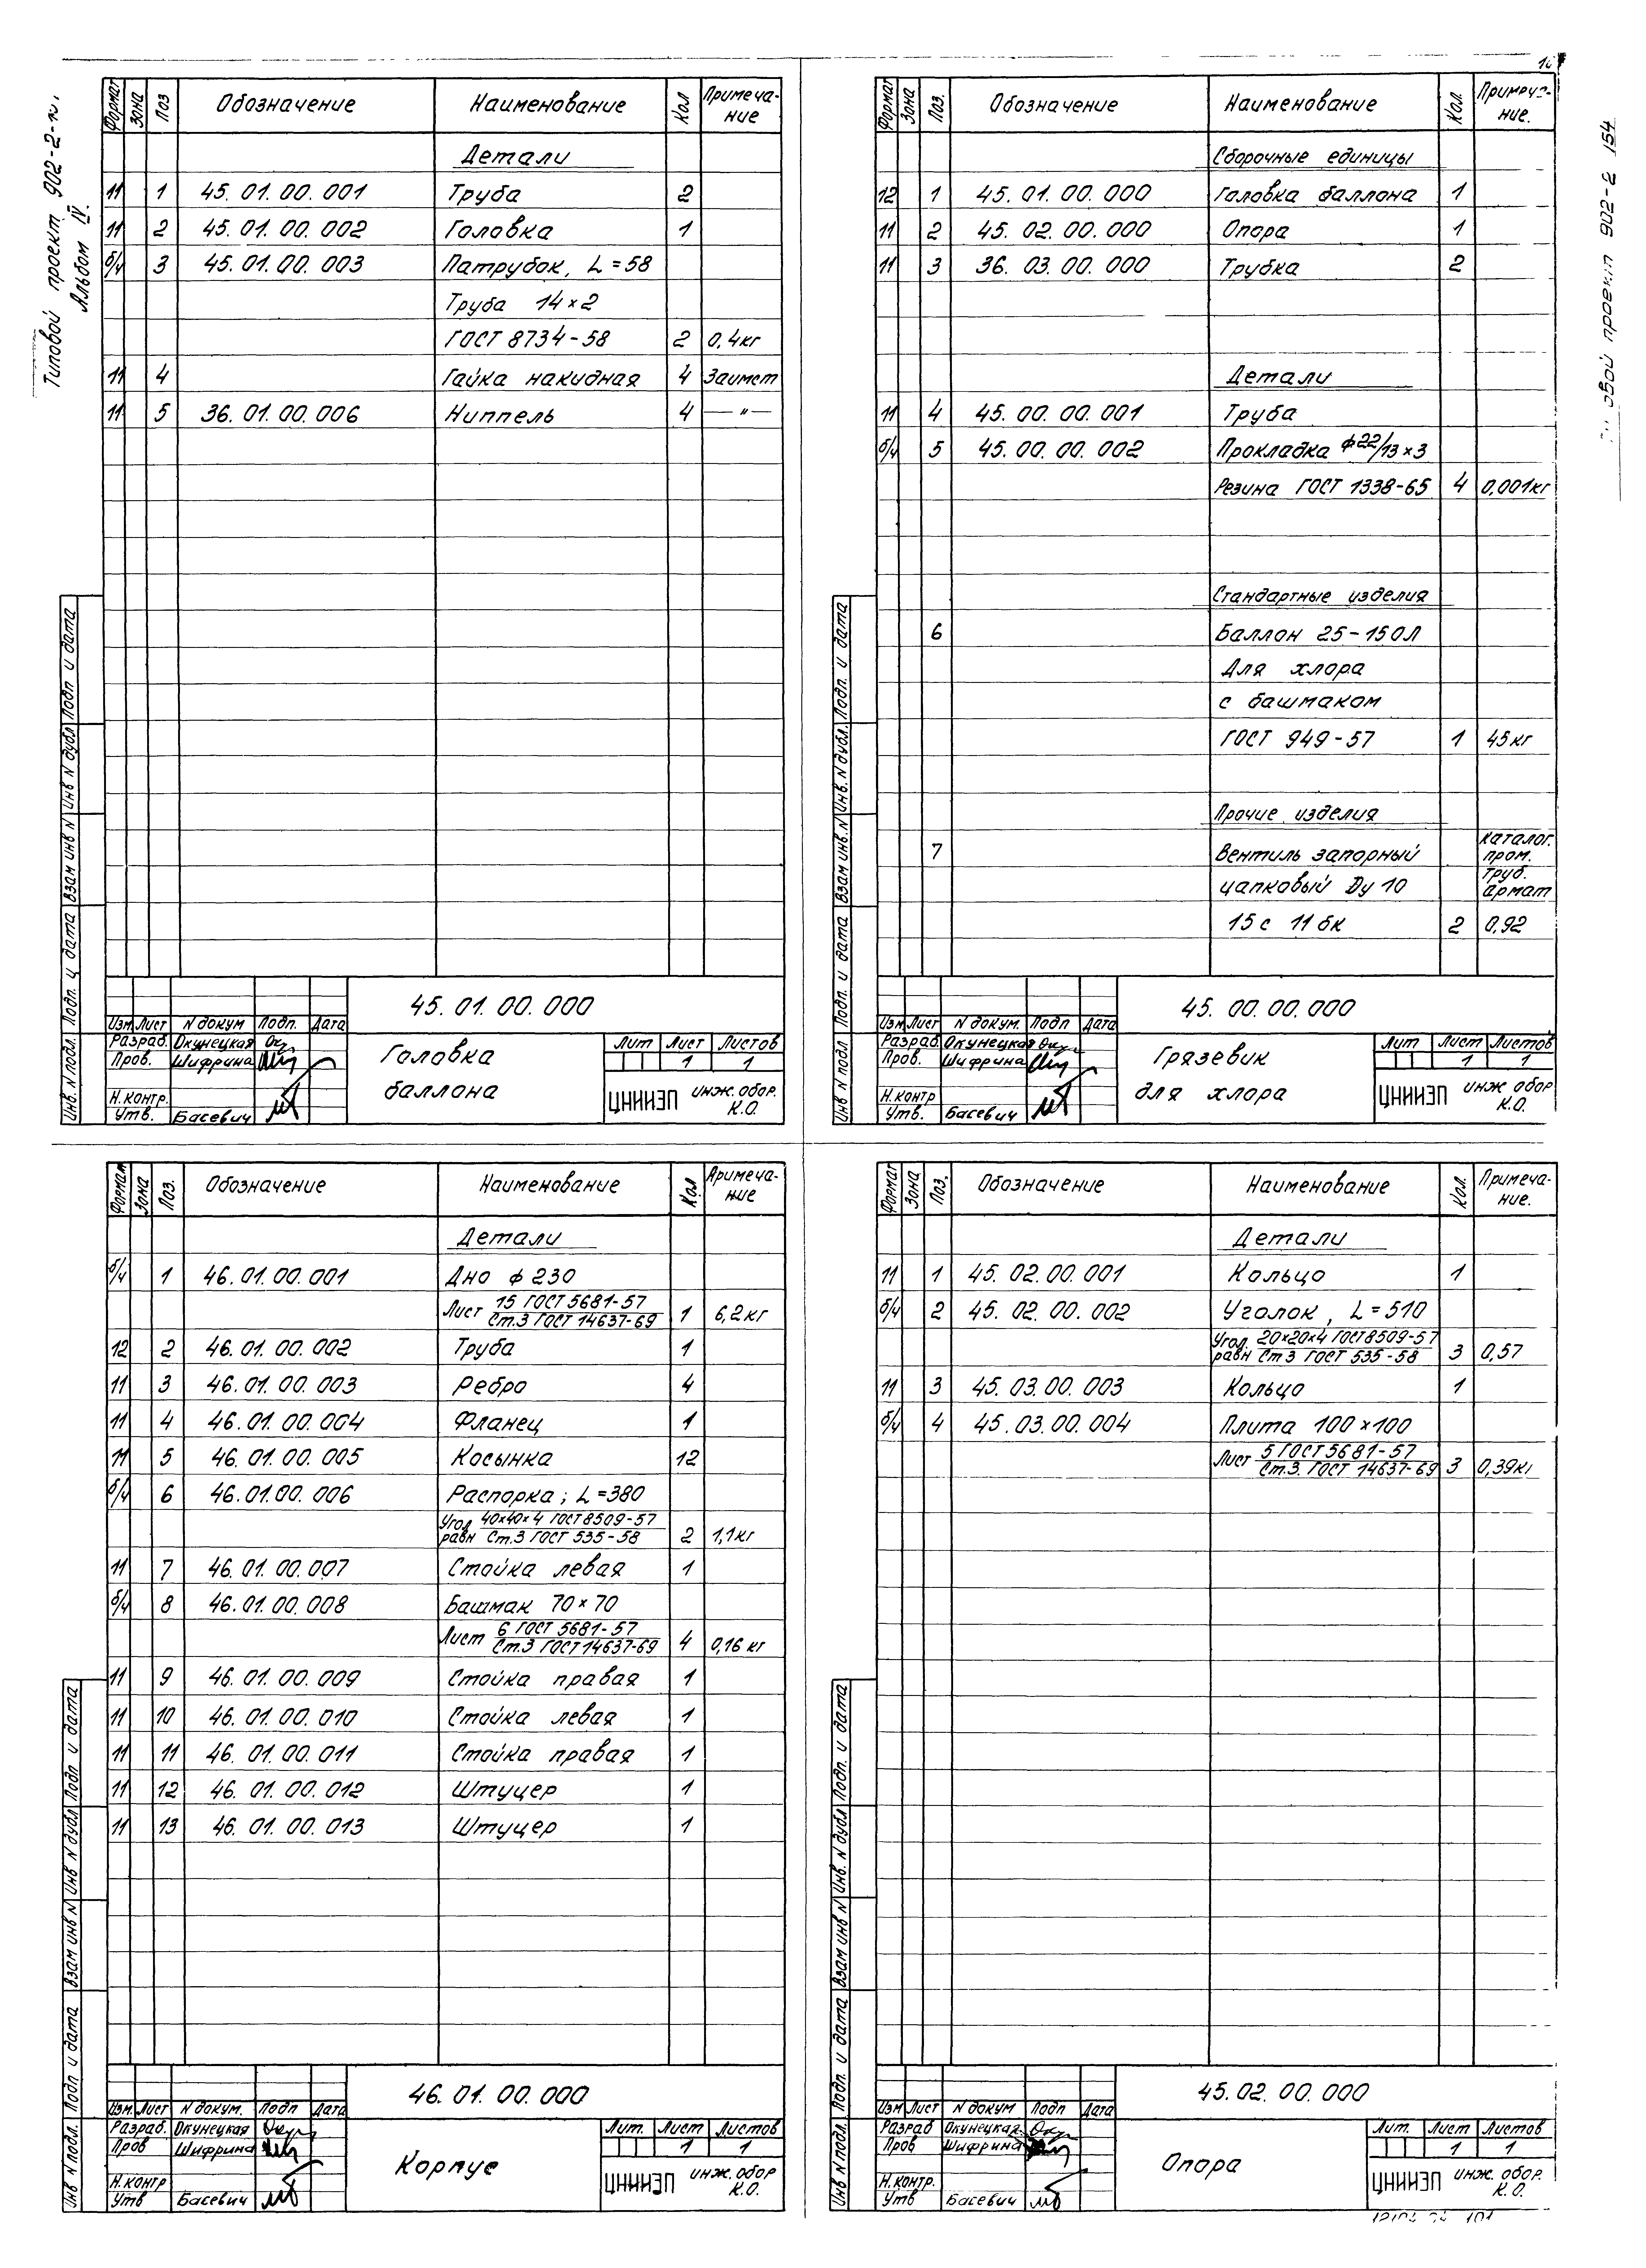 Типовой проект 902-2-
Альбом IV.
Формат Зона Поз Обозначение Наименование Кол Примеча-
ние
Детали
11 1 45. 01. 00. 001 Труба 2
11 2 45. 01. 00. 002 Головка 1
б/ч 3 45. 01. 00. 003 Патрубок, L = 58
Труба 14 × 2
ГОСТ 8734-58 2 0,4кг
11 4 Гайка накидная 4 Заимст
11 5 36. 01. 00. 006 Ниппель 4 — " —
45. 01. 00. 000
Изм Лист N докум Подп. Дата
Разраб. Окунецкая
Пров. Шифрина
Н.контр.
Утв. Басевич
Головка
баллона
Лит Лист Листов
1 1
ЦНИИЭП инж. обор.
К.О.
Инв. N подл. Подп. и дата Взам инв N Инв N дубл Подп и дата
902-2 154
Формат Зона Поз. Обозначение Наименование Кол. Примеча-
ние.
Сборочные единицы
12 1 45. 01. 00. 000 Головка баллона 1
11 2 45. 02. 00. 000 Опора 1
11 3 36. 03. 00. 000 Трубка 2
Детали
11 4 45. 00. 00. 001 Труба
б/ч 5 45. 00. 00. 002 Прокладка ф22/13 × 3
Резина ГОСТ 1338-65 4 0,001кг
Стандартные изделия
6 Баллон 25-150Л
Для хлора
с башмаком
ГОСТ 949-57 1 45кг
Прочие изделия
7 Вентиль запорный
цапковый Ду 10
15 с 11 бк 2 0,92
каталог.
пром.
труб.
армат
45. 00. 00. 000
Изм Лист N докум. Подп Дата
Разраб Окунецкая
Пров. Шифрина
Н.контр
Утв. Басевич
Грязевик
для хлора
Лит Лист Листов
1 1
ЦНИИЭП инж обор
К.О.
Инв N подл Подп. и дата Взам инв. N Инв. N дубл. Подп. и дата
Формат Зона Поз. Обозначение Наименование Кол. Примеча-
ние
Детали
б/ч 1 46. 01. 00. 001 Дно ф 230
Лист 15 ГОСТ 5681-57
Ст.3 ГОСТ 14637-69 1 6,2кг
12 2 46. 01. 00. 002 Труба 1
11 3 46. 01. 00. 003 Ребро 4
11 4 46. 01. 00. 004 Фланец 1
11 5 46. 01. 00. 005 Косынка 12
б/ч 6 46. 01. 00. 006 Распорка; L =380
Угол равн 40×40×4 ГОСТ 8509-57
Ст.3 ГОСТ 535-58 2 1,1кг
11 7 46. 01. 00. 007 Стойка левая 1
б/ч 8 46. 01. 00. 008 Башмак 70 × 70
Лист 6 ГОСТ 5681-57
Ст.3 ГОСТ 14637-69 4 0,16 кг
11 9 46. 01. 00. 009 Стойка правая 1
11 10 46. 01. 00. 010 Стойка левая 1
11 11 46. 01. 00. 011 Стойка правая 1
11 12 46. 01. 00. 012 Штуцер 1
11 13 46. 01. 00. 013 Штуцер 1
46. 01. 00. 000
Изм. Лист N докум. Подп Дата
Разраб. Окунецкая
Пров Шифрина
Н.контр
Утв Басевич
Корпус
Лит. Лист Листов
1 1
ЦНИИЭП инж. обор
К.О.
Инв N подл. Подп и дата Взам инв N Инв N дубл Подп и дата
Формат Зона Поз. Обозначение Наименование Кол. Примеча-
ние.
Детали
11 1 45. 02. 00. 001 Кольцо 1
б/ч 2 45. 02. 00. 002 Уголок, L = 510
Угол. равн 20×20×4 ГОСТ 8509-57
Ст 3 ГОСТ 535-58 3 0,57
11 3 45. 03. 00. 003 Кольцо 1
б/ч 4 45. 03. 00. 004 Плита 100 × 100
Лист 5 ГОСТ 5681-57
Ст.3. ГОСТ 14637-69 3 0,39кг
45. 02. 00. 000
Изм Лист N докум Подп Дата
Разраб Окунецкая
Пров Шифрина
Н.контр.
Утв Басевич
Опора
Лит. Лист Листов
1 1
ЦНИИЭП инж. обор.
К.О.
Инв N подл. Подп. и дата Взам инв N Инв. N дубл Подп. и дата